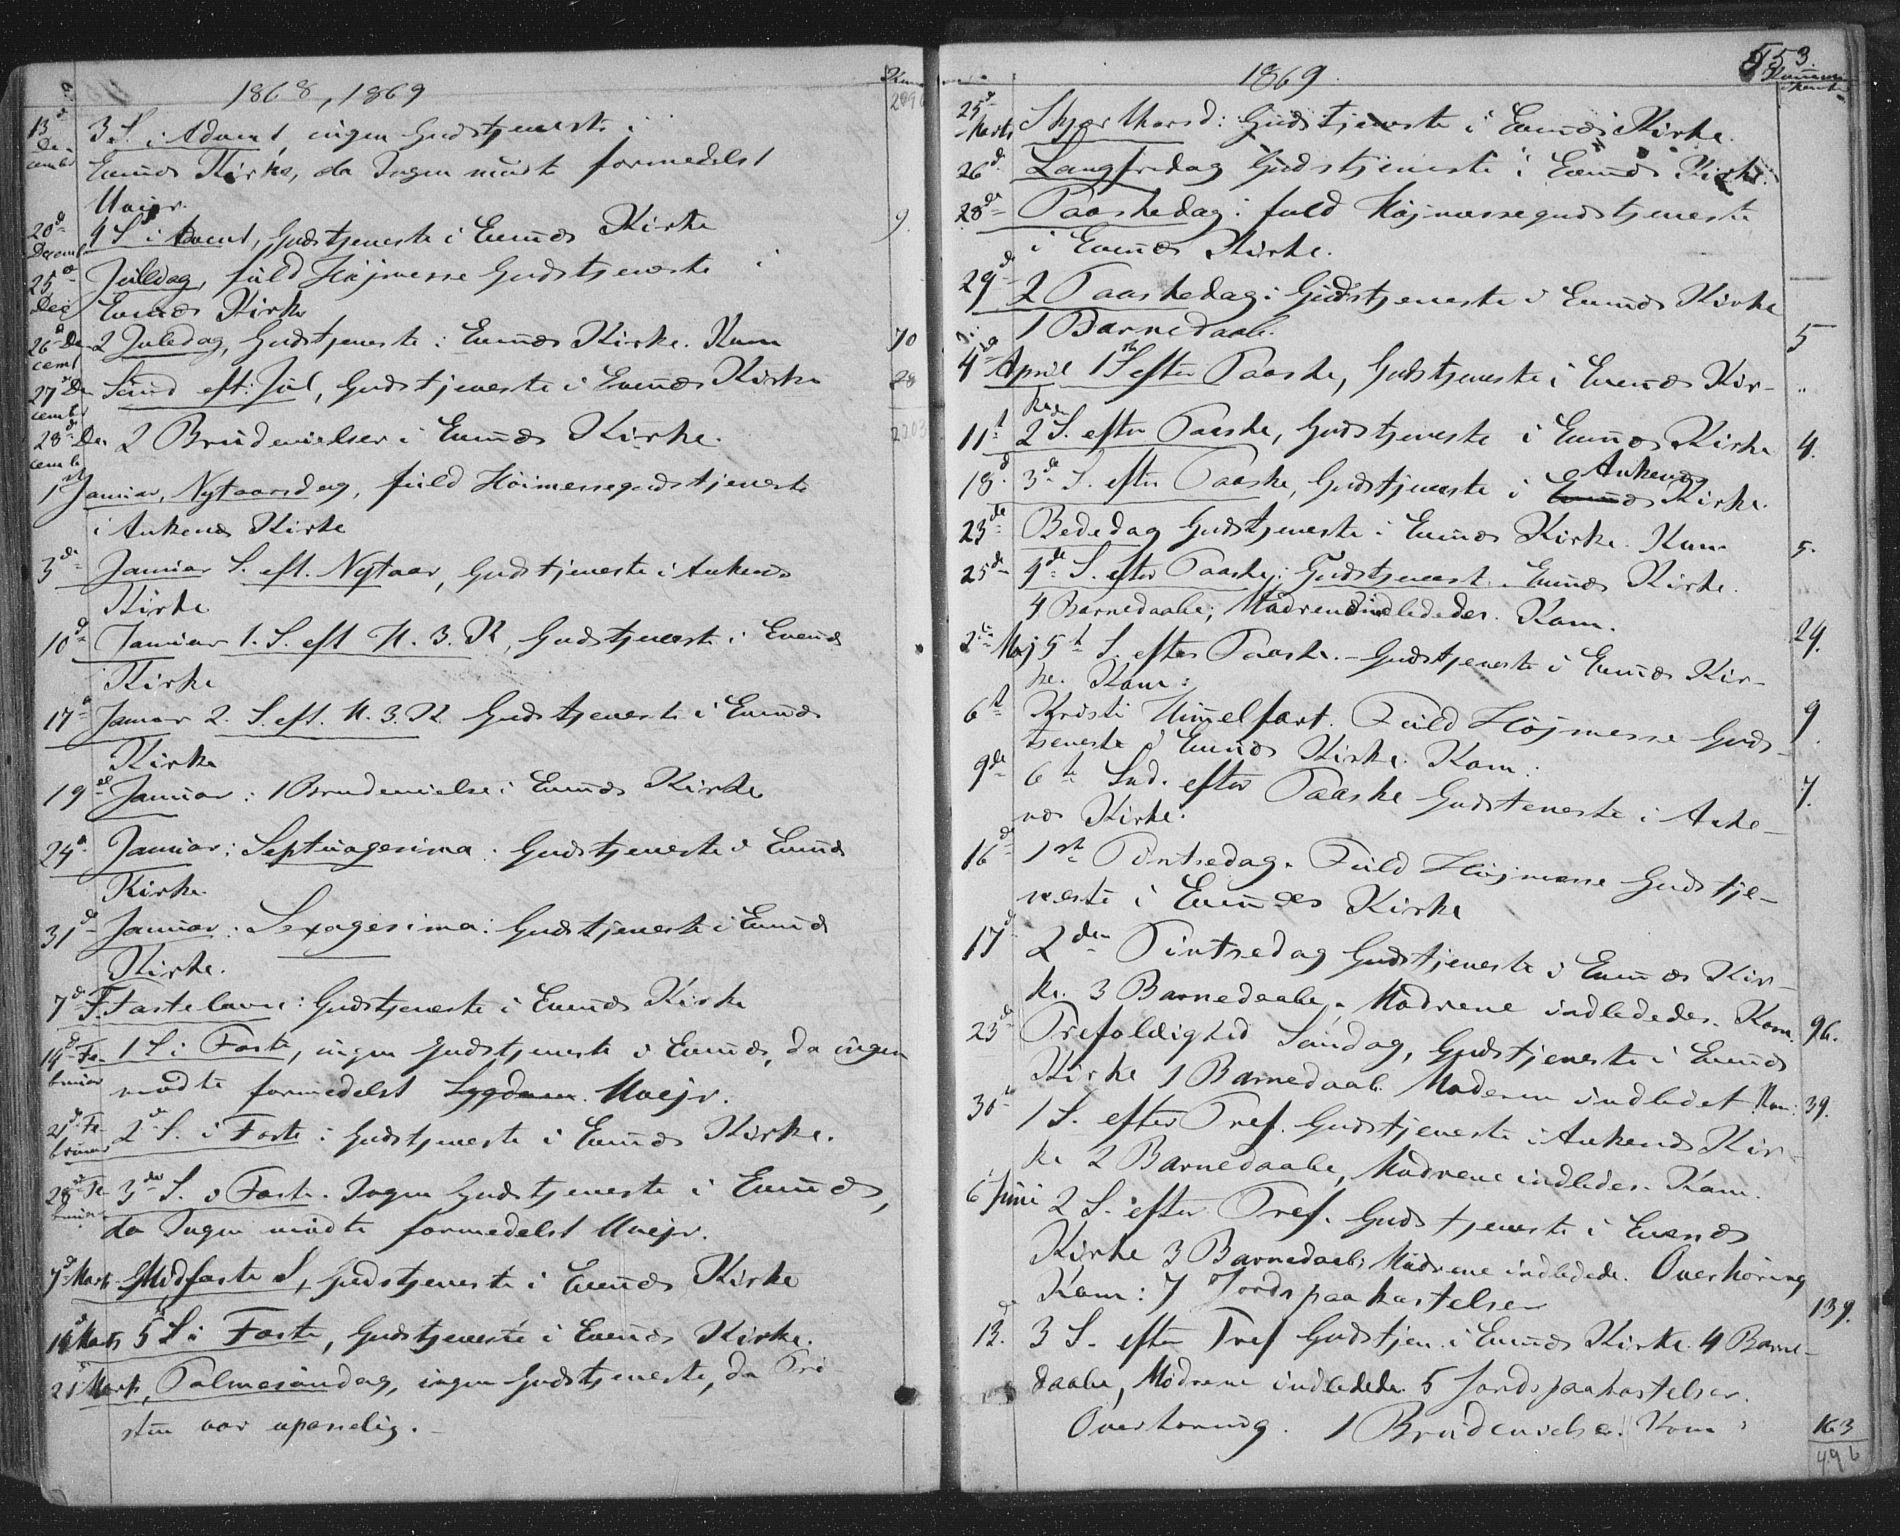 1868, 1869
13de December 3 S. i Advent, ingen Gudstjeneste i
Evenæs Kirke, da Ingen mødte formedelst
Uveir.
20de Decemb 4 S. i Advent, Gudstjeneste i Evenæs Kirke 9.
25de Dec Juledag, fuld Højmesse Gudstjeneste i
Evenæs Kirke
26de December 2 Juledag, Gudstjeneste i Evenæs Kirke. Kom 10
27de December Sönd eft: Jul, Gudstjeneste i Evenæs Kirke 28
28de December 2 Brudevielser i Evenæs Kirke.
1ste Januar, Nytaarsdag, fuld Höimessegudstjeneste
i Ankenes Kirke
3de Januar S. eft. Nytaar, Gudstjeneste i Ankenæs
Kirke
10de Januar 1. S. eft H. 3. K, Gudstjeneste i Evenæs
Kirke
17de Januar 2. S. eft. H. 3. K. Gudstjeneste i Evenæs
Kirke
19de Januar: 1 Brudevielse i Evenæs Kirke
24de Januar: Septuagesima: Gudstjeneste i Evenæs
Kirke.
31de Januar: Sexagesima: Gudstjeneste i Evenæs
Kirke.
7de F. Fastelavn: Gudstjeneste i Evenæs Kirke
14de Februar 1 S i Faste, ingen Gudstjeneste i Evenæs, da ingen
mødte formedelst Sygdomm. Uvejr.
21de Februar 2de S. i Faste: Gudstjeneste i Evenæs Kirke.
28de Februar 3die S. i Faste. Ingen Gudstjeneste i Evenæs,
da Ingen mødte formedelst Uvejr.
7de Marts Midfaste S, Gudstjeneste i Evenæs Kirke
14de Marts 5 S i Faste, Gudstjeneste i Evenæs Kirke.
21de Marts, Palmesöndag, ingen Gudstjeneste, da Præ
sten var upasselig.
553.
1869.
25de Marts Skjærthorsd: Gudstjeneste i Evenæs Kirke.
26de Langfredag Gudstjeneste i Evenæs Kirke.
28de Paaskedag: fuld Højmessegudstjeneste
i Evenæs Kirke.
29de 2 Paaskedag: Gudstjeneste i Evenæs Kirke
1 Barnedaab. 5
4de April 1ste S efter Paaske, Gudstjeneste i Evenæs Kir- "
ke
11te 2 S. efter Paaske, Gudstjeneste i Evenæs Kirke 4.
18de 3de S. efter Paaske, Gudstjeneste i Evenæs Ankenæs Kirke.
23de Bededag Gudstjeneste i Evenæs Kirke. Kom 5.
25de 4de S. efter Paaske; Gudstjeneste i Evenæs Kirke.
4 Barnedaabe; Mödrene indlededes. Kom. 24.
2den Maj 5te S. efter Paaske. - Gudstjeneste i Evenæs Kir-
ke. Kom:
6te Kristi Himmelfart. Fuld Højmesse Guds- 9
tjeneste i Evenæs Kirke. Kom:
9de 6te Snd. efter Paaske Gudstjeneste i Anke- 7.
næs Kirke.
16de 1ste Pintsedag. Fuld Højmesse Gudstje-
neste i Evenæs Kirke
17de 2den Pintsedag Gudstjeneste i Evenæs Kir-
ke. 3 Barnedaabe, Mödrene indlededes. Kom. 96.
23de Trefoldighed Søndag, Gudstjeneste i Evenæs
Kirke 1 Barnedaab Moderen indledet. Kom: 39.
30te 1 S. efter Tref. Gudstjeneste i Ankenes Kir-
ke 2 Barnedaabe, Mödrene indledes. Kom.
6 Juni 2 S. efter Tref. Gudstjeneste i Evenæs
Kirke 3 Barnedaab, Mödrene indledede. Overhöring
Kom: 7 Jordspaakastelser 139.
13de 3 S. efter Tref Gudstjen. i Evenæs Kirke. 4 Barne-
daabe, Mödrene indledede 5 Jordspaakastelser.
Overhöring. 1 Brudevielse. Kom: 163
496